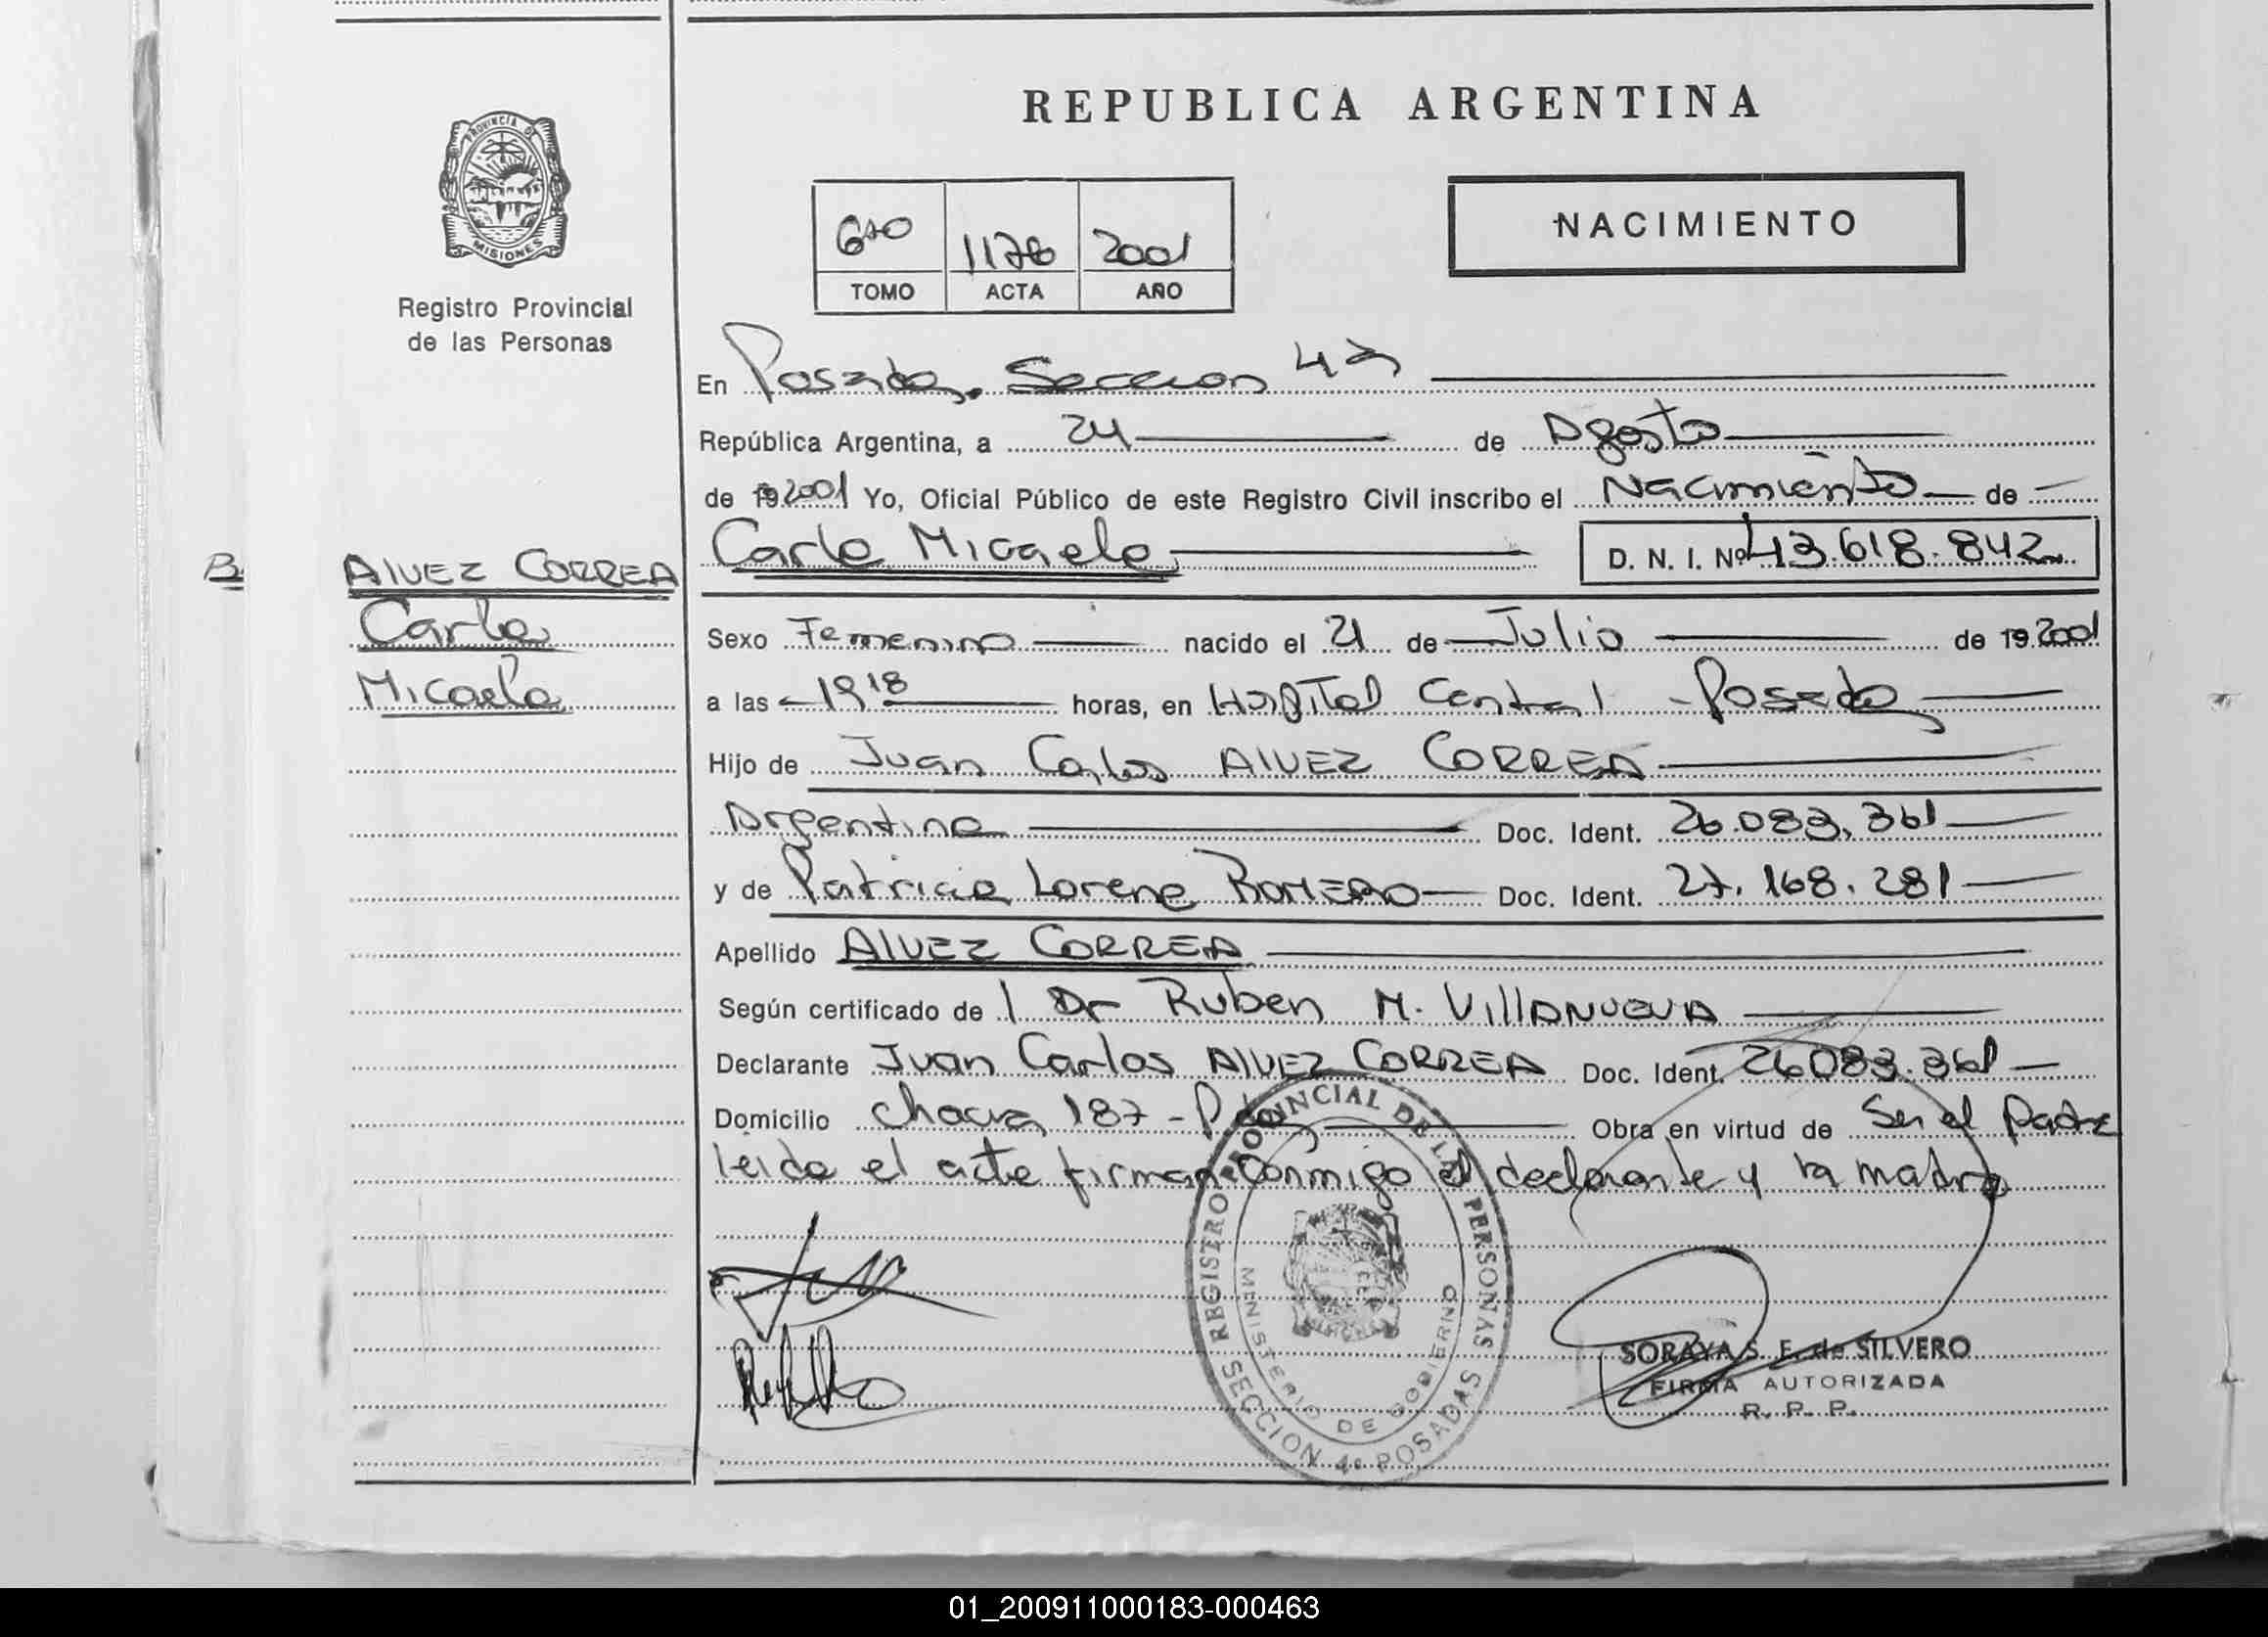 PROVINCIA DE
MISIONES
Registro Provincial
de las Personas
REPUBLICA ARGENTINA
NACIMIENTO
6to 1178 2001
TOMO ACTA AÑO
En Posadas, Seccion 4ª
República Argentina, a 24 de Agosto
de 19 2001 Yo, Oficial Público de este Registro Civil inscribo el Nacimiento de
Carla Micaela D. N. I. Nº 43.618.842
ALVEZ CORREA
Carla
Micaela
Sexo Femenino nacido el 21 de Julio de 19 2001
a las 19 18 horas, en Hospital Central - Posadas
Hijo de Juan Carlos ALVEZ CORREA
Argentino Doc. Ident. 26.083.361
y de Patricia Lorena ROMERO Doc. Ident. 27.168.281
Apellido ALVEZ CORREA
Según certificado de l Dr Ruben M. VILLANUEVA
Declarante Juan Carlos ALVEZ CORREA Doc. Ident. 26083.361
Domicilio Chacra 187 - Pdas Obra en virtud de Ser el Padre
leida el acta firman conmigo el declarante y la madre
REGISTRO PROVINCIAL DE LAS PERSONAS
MINISTERIO DE GOBIERNO
SECCION 4ª POSADAS
SORAYA S. E. de SILVERO
FIRMA AUTORIZADA
R. P. P.
01_200911000183-000463